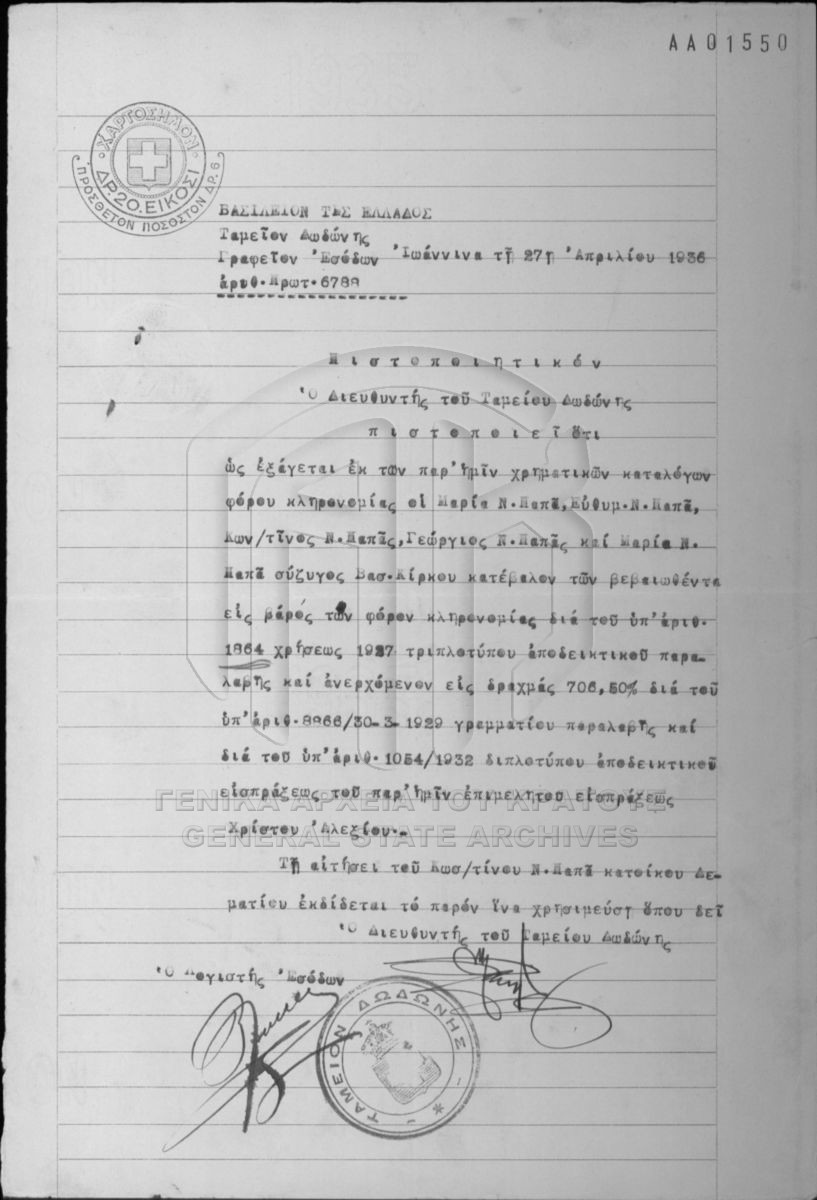 ΑΑ01550
ΧΑΡΤΟΣΗΜΟΝ
ΔΡ.20.ΕΙΚΟΣΙ
ΠΡΟΣΘΕΤΟΝ ΠΟΣΟΣΤΟΝ ΔΡ. 6
ΒΑΣΙΛΕΙΟΝ ΤΗΣ ΕΛΛΑΔΟΣ
Ταμεῖον Δωδώνης
Γραφεῖον Ἐσόδων Ἰωάννινα τῇ 27η Ἀπριλίου 1936
ἀριθ.Πρωτ.6788
Π ι σ τ ο π ο ι η τ ι κ ό ν
Ὁ Διευθυντής τοῦ Ταμείου Δωδώνης
π ι σ τ ο π ο ι ε ῖ ὅτι
ὡς ἐξάγεται ἐκ τῶν παρ'ἡμῖν χρηματικῶν καταλόγων
φόρου κληρονομίας οἱ Μαρία Ν.Παπᾶ,Εὐθυμ.Ν.Παπᾶ,
Κων/τῖνος Ν.Παπᾶς,Γεώργιος Ν.Παπᾶς καί Μαρία Ν.
Παπᾶ σύζυγος Βασ.Κίρκου κατέβαλον τῶν βεβαιωθέντα
εἰς βάρός τῶν φόρον κληρονομίας διά τοῦ ὑπ'ἀριθ.
1864 χρήσεως 1927 τριπλοτύπου ἀποδεικτικοῦ παρα-
λαβῆς καί ἀνερχόμενον εἰς δραχμάς 706,50% διά τοῦ
ὑπ'ἀριθ.8866/30-3-1929 γραμματίου παραλαβῆς καί
διά τοῦ ὑπ'ἀριθ.1054/1932 διπλοτύπου ἀποδεικτικοῦ
εἰσπράξεως τοῦ παρ'ἡμῖν ἐπιμελητοῦ εἰσπράξεως
ΓΕΝΙΚΑ ΑΡΧΕΙΑ ΤΟΥ ΚΡΑΤΟΥΣ
Χρίστου Ἀλεξίου.-
GENERAL STATE ARCHIVES
Τῇ αἰτήσει τοῦ Κωσ/τίνου Ν.Παπᾶ κατοίκου Δε-
ματίου ἐκδίδεται τό παρόν ἵνα χρησιμεύσῃ ὅπου δεῖ
Ὁ Διευθυντής τοῦ Ταμείου Δωδώνης
Ὁ Λογιστής Ἐσόδων
ΤΑΜΕΙΟΝ ΔΩΔΩΝΗΣ